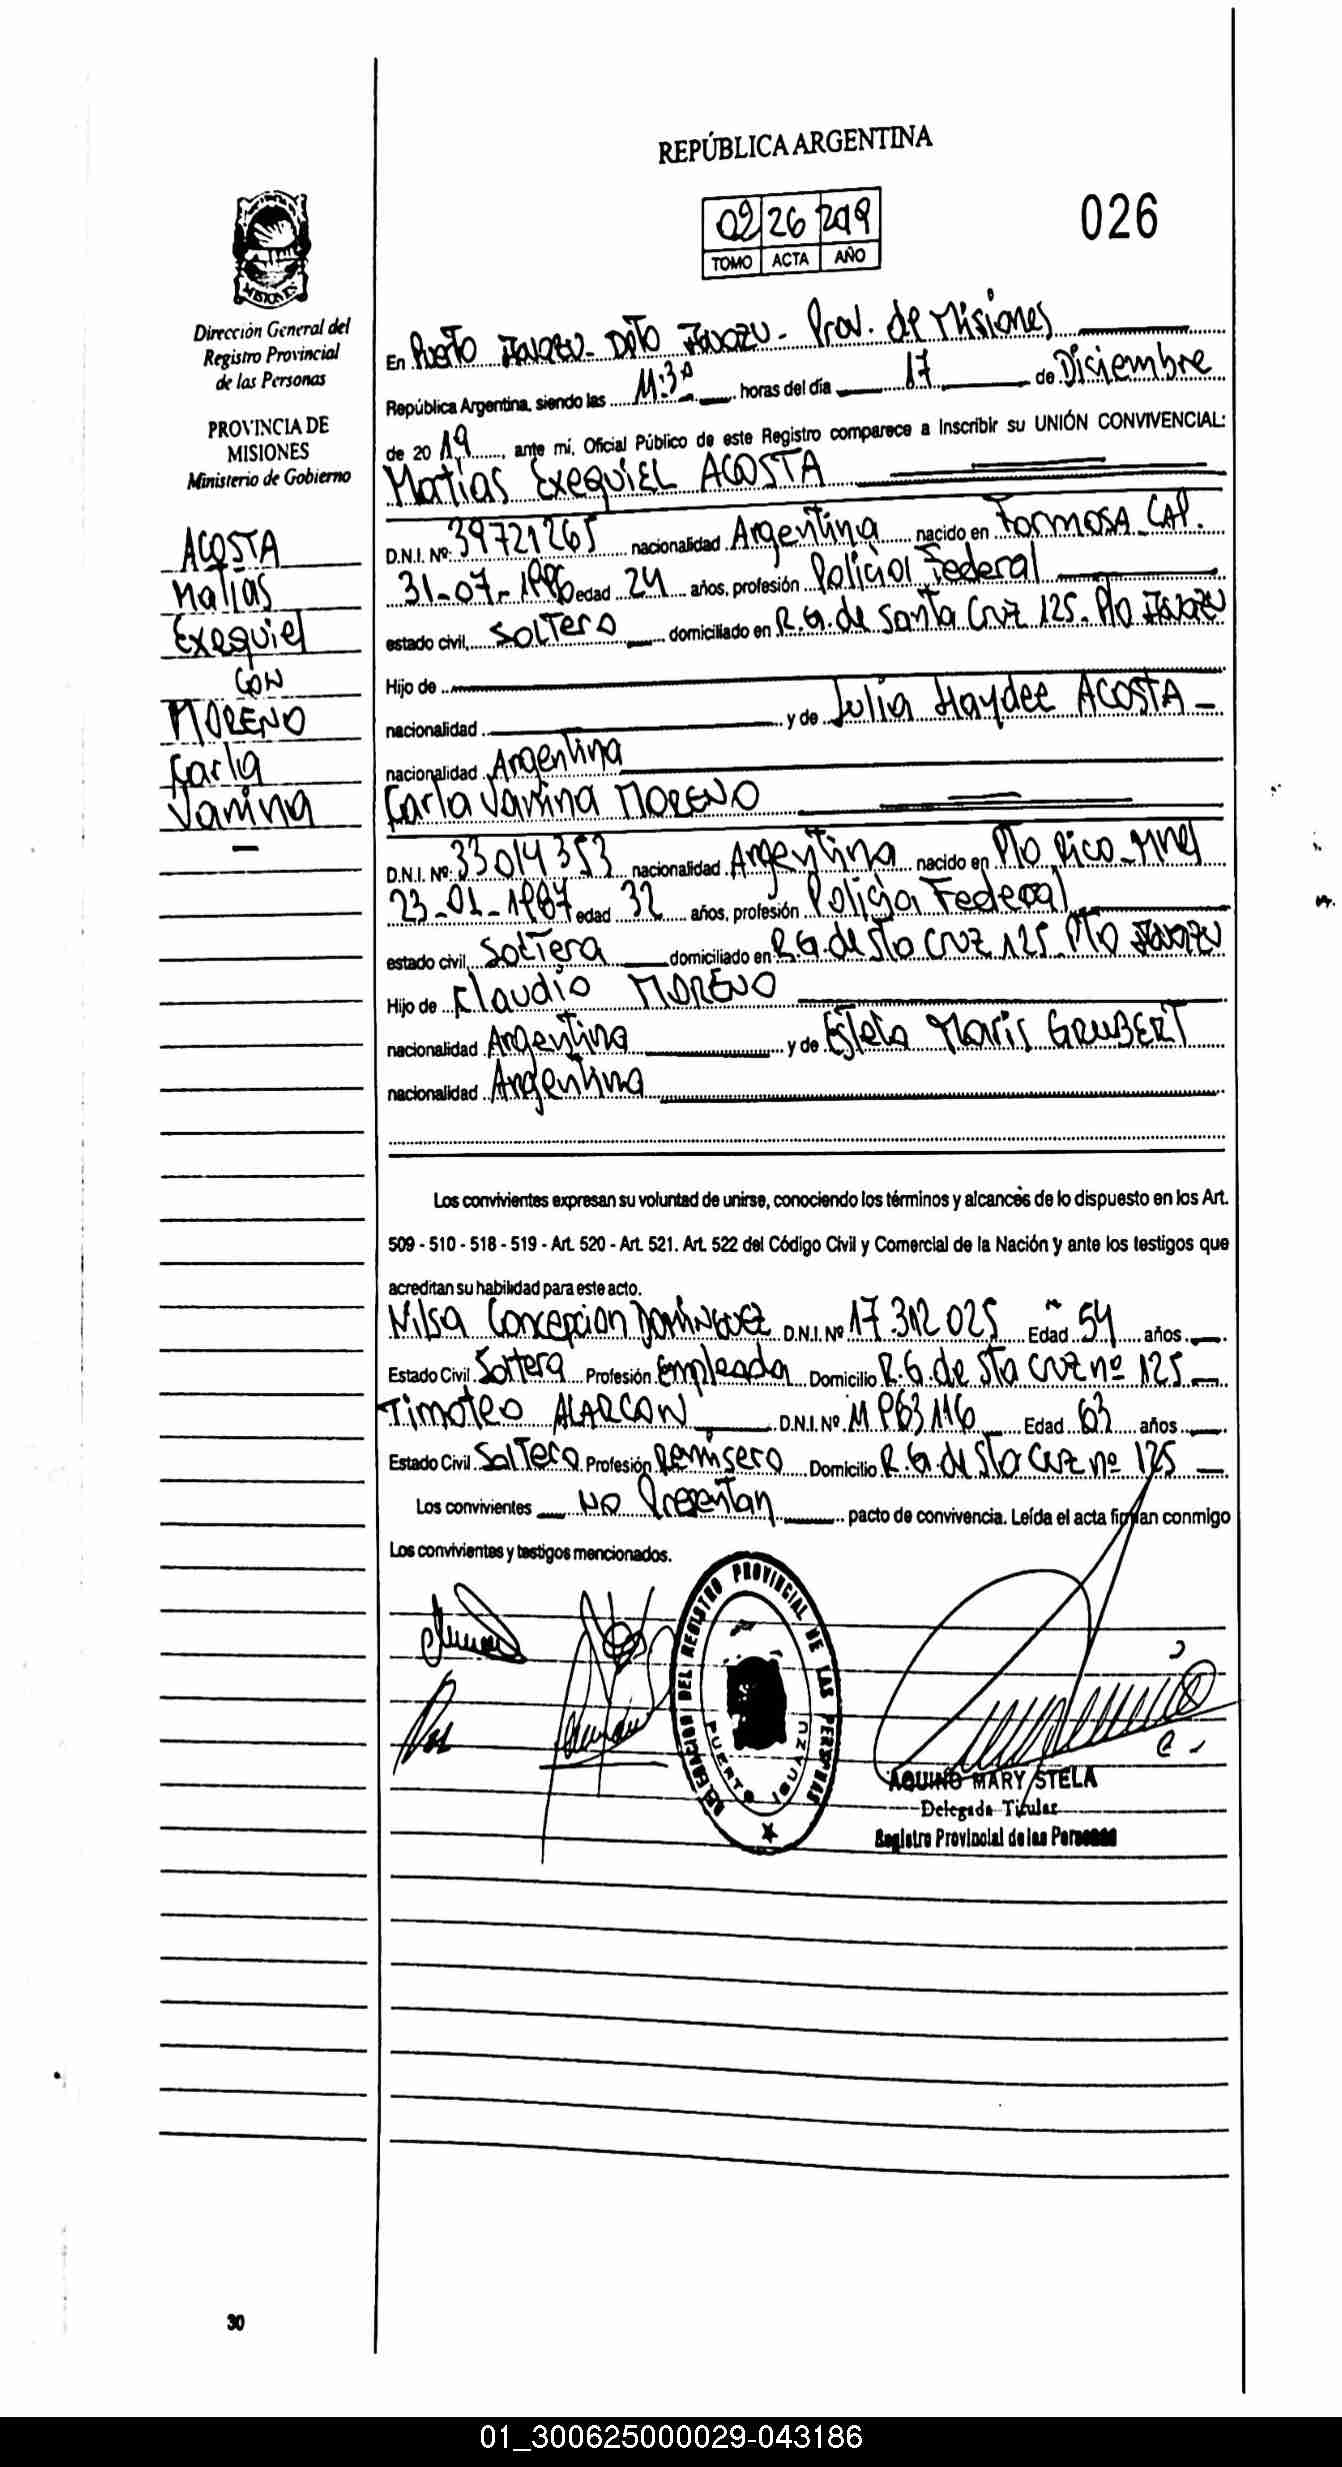 REPÚBLICA ARGENTINA
02 26 2019
TOMO ACTA AÑO
026
MISIONES
Dirección General del
Registro Provincial
de las Personas
PROVINCIA DE
MISIONES
Ministerio de Gobierno
ACOSTA
Matías
Exequiel
CON
MORENO
Carla
Vanina
En Puerto Iguazu - Dpto Iguazu - Prov. de Misiones
República Argentina, siendo las 11:30 horas del día 17 de Diciembre
de 2019, ante mí, Oficial Público de este Registro comparece a Inscribir su UNIÓN CONVIVENCIAL:
Matías Exequiel ACOSTA
D.N.I. Nº: 39721265 nacionalidad Argentina nacido en Formosa CAP.
31-07-1996 edad 24 años, profesión Policia Federal
estado civil, Soltero domiciliado en R.G. de Santa Cruz 125. Pto Iguazu
Hijo de
nacionalidad y de Julia Haydee ACOSTA
nacionalidad Argentina
Carla Vanina MORENO
D.N.I. Nº: 33014353 nacionalidad Argentina nacido en Pto Rico - Mnes
23-01-1987 edad 32 años, profesión Policia Federal
estado civil, Soltera domiciliado en R.G. de Sta Cruz 125 Pto Iguazu
Hijo de Claudio MORENO
nacionalidad Argentina y de Estela Maris GRUBERT
nacionalidad Argentina
Los convivientes expresan su voluntad de unirse, conociendo los términos y alcances de lo dispuesto en los Art.
509 - 510 - 518 - 519 - Art. 520 - Art. 521. Art. 522 del Código Civil y Comercial de la Nación y ante los testigos que
acreditan su habilidad para este acto.
Nilsa Concepcion DOMINGUEZ D.N.I. Nº 17.312.025 Edad 54 años
Estado Civil Soltera Profesión Empleada Domicilio R.G. de Sta Cruz nº 125
Timoteo ALARCON D.N.I. Nº Edad 63 años
Estado Civil Soltero Profesión Remisero Domicilio R.G. de Sta Cruz nº 125
Los convivientes no Presentan pacto de convivencia. Leída el acta firman conmigo
Los convivientes y testigos mencionados.
DELEGACION DEL REGISTRO PROVINCIAL DE LAS PERSONAS
PUERTO IGUAZU
AQUINO MARY STELA
Delegada Titular
Registro Provincial de las Personas
30
01_300625000029-043186